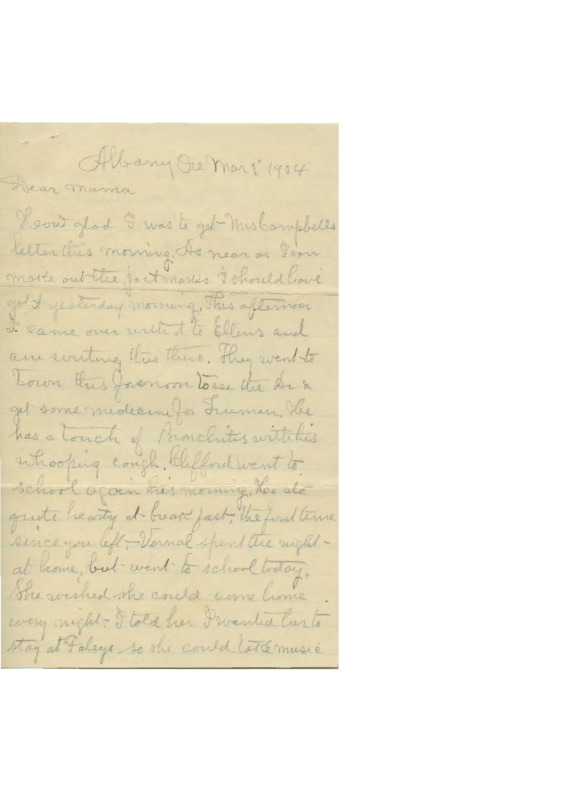 Albany Ore Mar 1st 1904
Dear Mama
How glad I was to get Mrs Campbells
letter this morning. As near as I can
make out the postmarks I should have
got it yesterday morning. This afternoon
I came over with it to Ellens and
am writing this there. They went to
town this forenoon to see the Dr &
get some medecine for Truman. He
has a touch of Bronchitis with his
whooping cough. Clifford went to
school again this morning. He ate
quite hearty at breakfast, the first time
since you left. Vernal spent the night
at home, but went to school today.
She wished she could come home
every night. I told her I wanted her to
stay at so she could take music